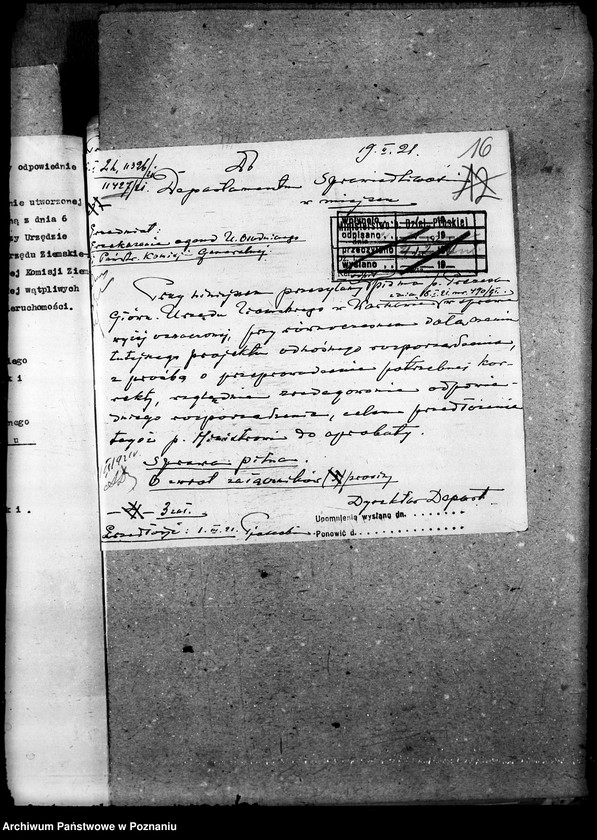 y odpowiednie
nie utworzonej
ną z dnia 6
zy Urzędzie
rzędu Ziemskie-
ej Komisji Ziem
ej wątpliwych
ieruchomości.
iego
k i
nego
u
k i .
19. II. 21.
16
12
L. 26, 11326/
11427/21.
Departamentu Sprawiedliwości
w miejscu
Przedmiot:
Przekazanie agend U. Osadniczego
Państw. Komisji Generalnej
wpłynęło
odpisano
przeczytano
wysłano
19
Przy niniejszem przesyłam pismo p. Prezesa
Główn. Urzędu Ziemskiego w Warszawie w sprawie
wyżej oznaczonej, przy równoczesnem dołączeniu
tutejszego projektu odnośnego rozporządzenia,
z prośbą o przeprowadzenie potrzebnej kor-
rekty, względnie zredagowanie odpowie-
dniego rozporządzenia, celem przedłożenia
tegoż p. Ministrowi do aprobaty.
Sprawa pilna.
O zwrot załączników proszę
Dyrektor Depart.
3 zał.
Przedłożyć: 1. III. 21.
Upomnienia wysłano dn. . . . . . . . .
Ponowić d. . . . . . . . . . . . .
Archiwum Państwowe w Poznaniu